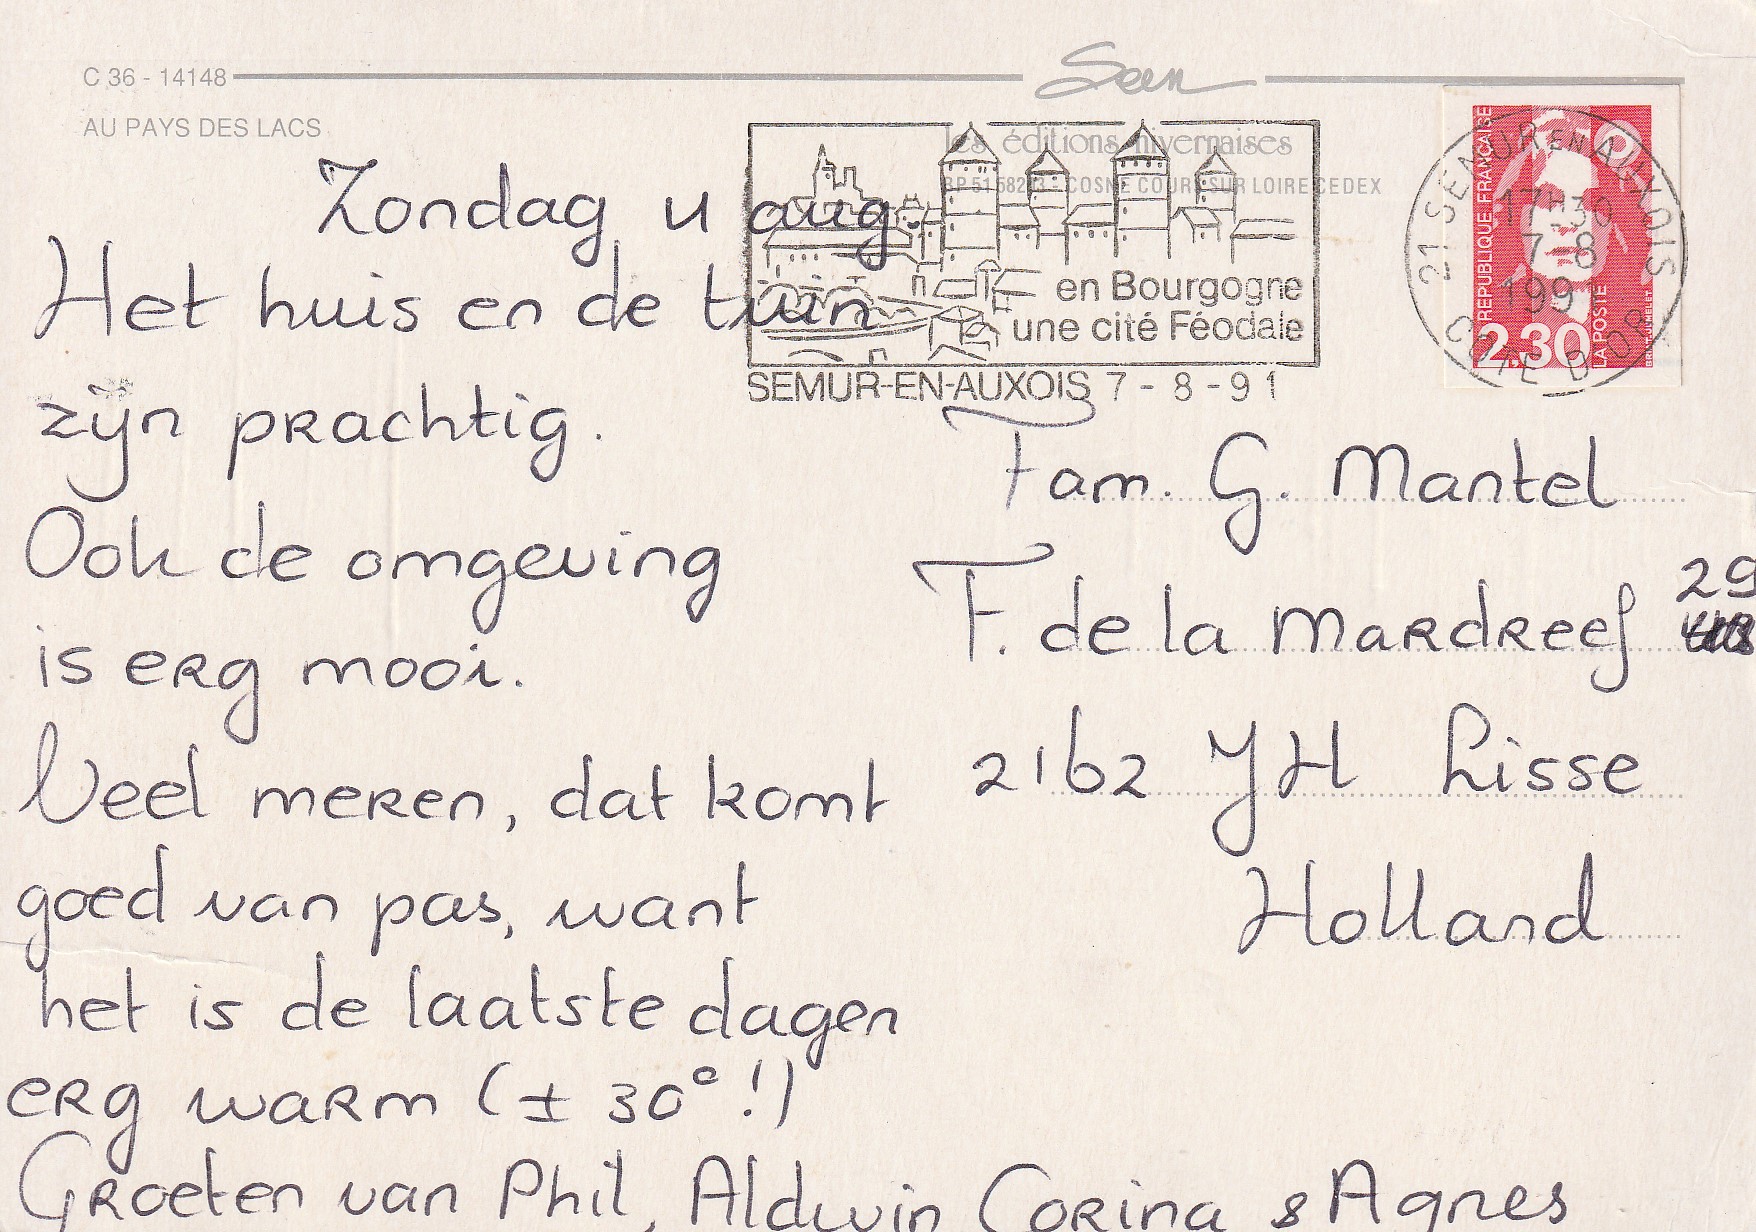 C 36 - 14148
Seen
AU PAYS DES LACS
les éditions nivernaises
BP 51 58203 - COSNE COURS SUR LOIRE CEDEX
en Bourgogne
une cité Féodale
SEMUR-EN-AUXOIS 7 - 8 - 91
REPUBLIQUE FRANÇAISE
2,30
LA POSTE
21 SEMUR EN AUXOIS
17H30
7-8
199
COTE D'OR
Zondag 4 aug.
Het huis en de tuin
zijn prachtig.
Ook de omgeving
is erg mooi.
Veel meren, dat komt
goed van pas, want
het is de laatste dagen
erg warm (± 30° !)
Groeten van Phil, Aldwin Corina & Agnes
Fam. G. Mantel
F. de la Mardreef 29
2162 JH Lisse
Holland